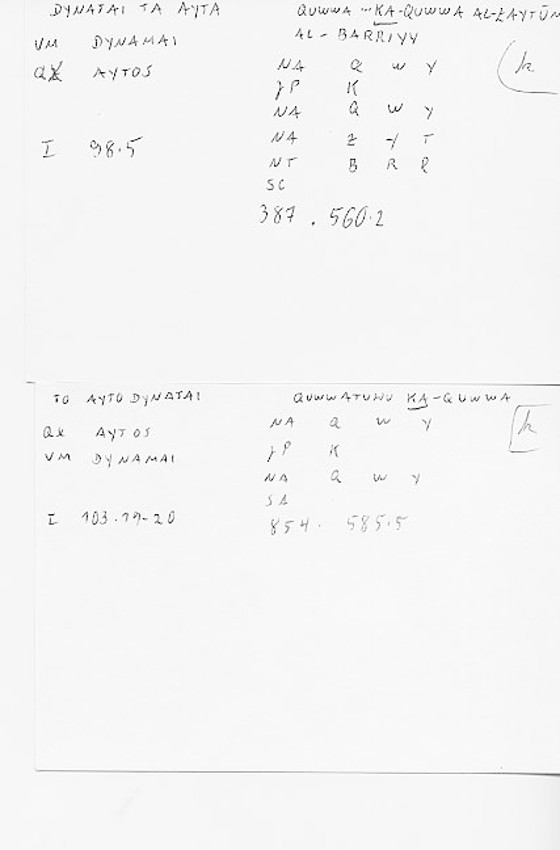 DYNATAI TA AYTA
VM DYNAMAI
QX AYTOS
I 98.5
QUWWA – KA-QUWWA AL-ZAYTŪN
AL-BARRIYY
NA Q W Y
JP K
NA Q W Y
NA Z Y T
NT B R R
SC
387 . 560.2
k
TO AYTO DYNATAI
QX AYTOS
VM DYNAMAI
I 103.19-20
QUWWATUHU KA-QUWWA
NA Q W Y
JP K
NA Q W Y
SA
854. 585.5
k